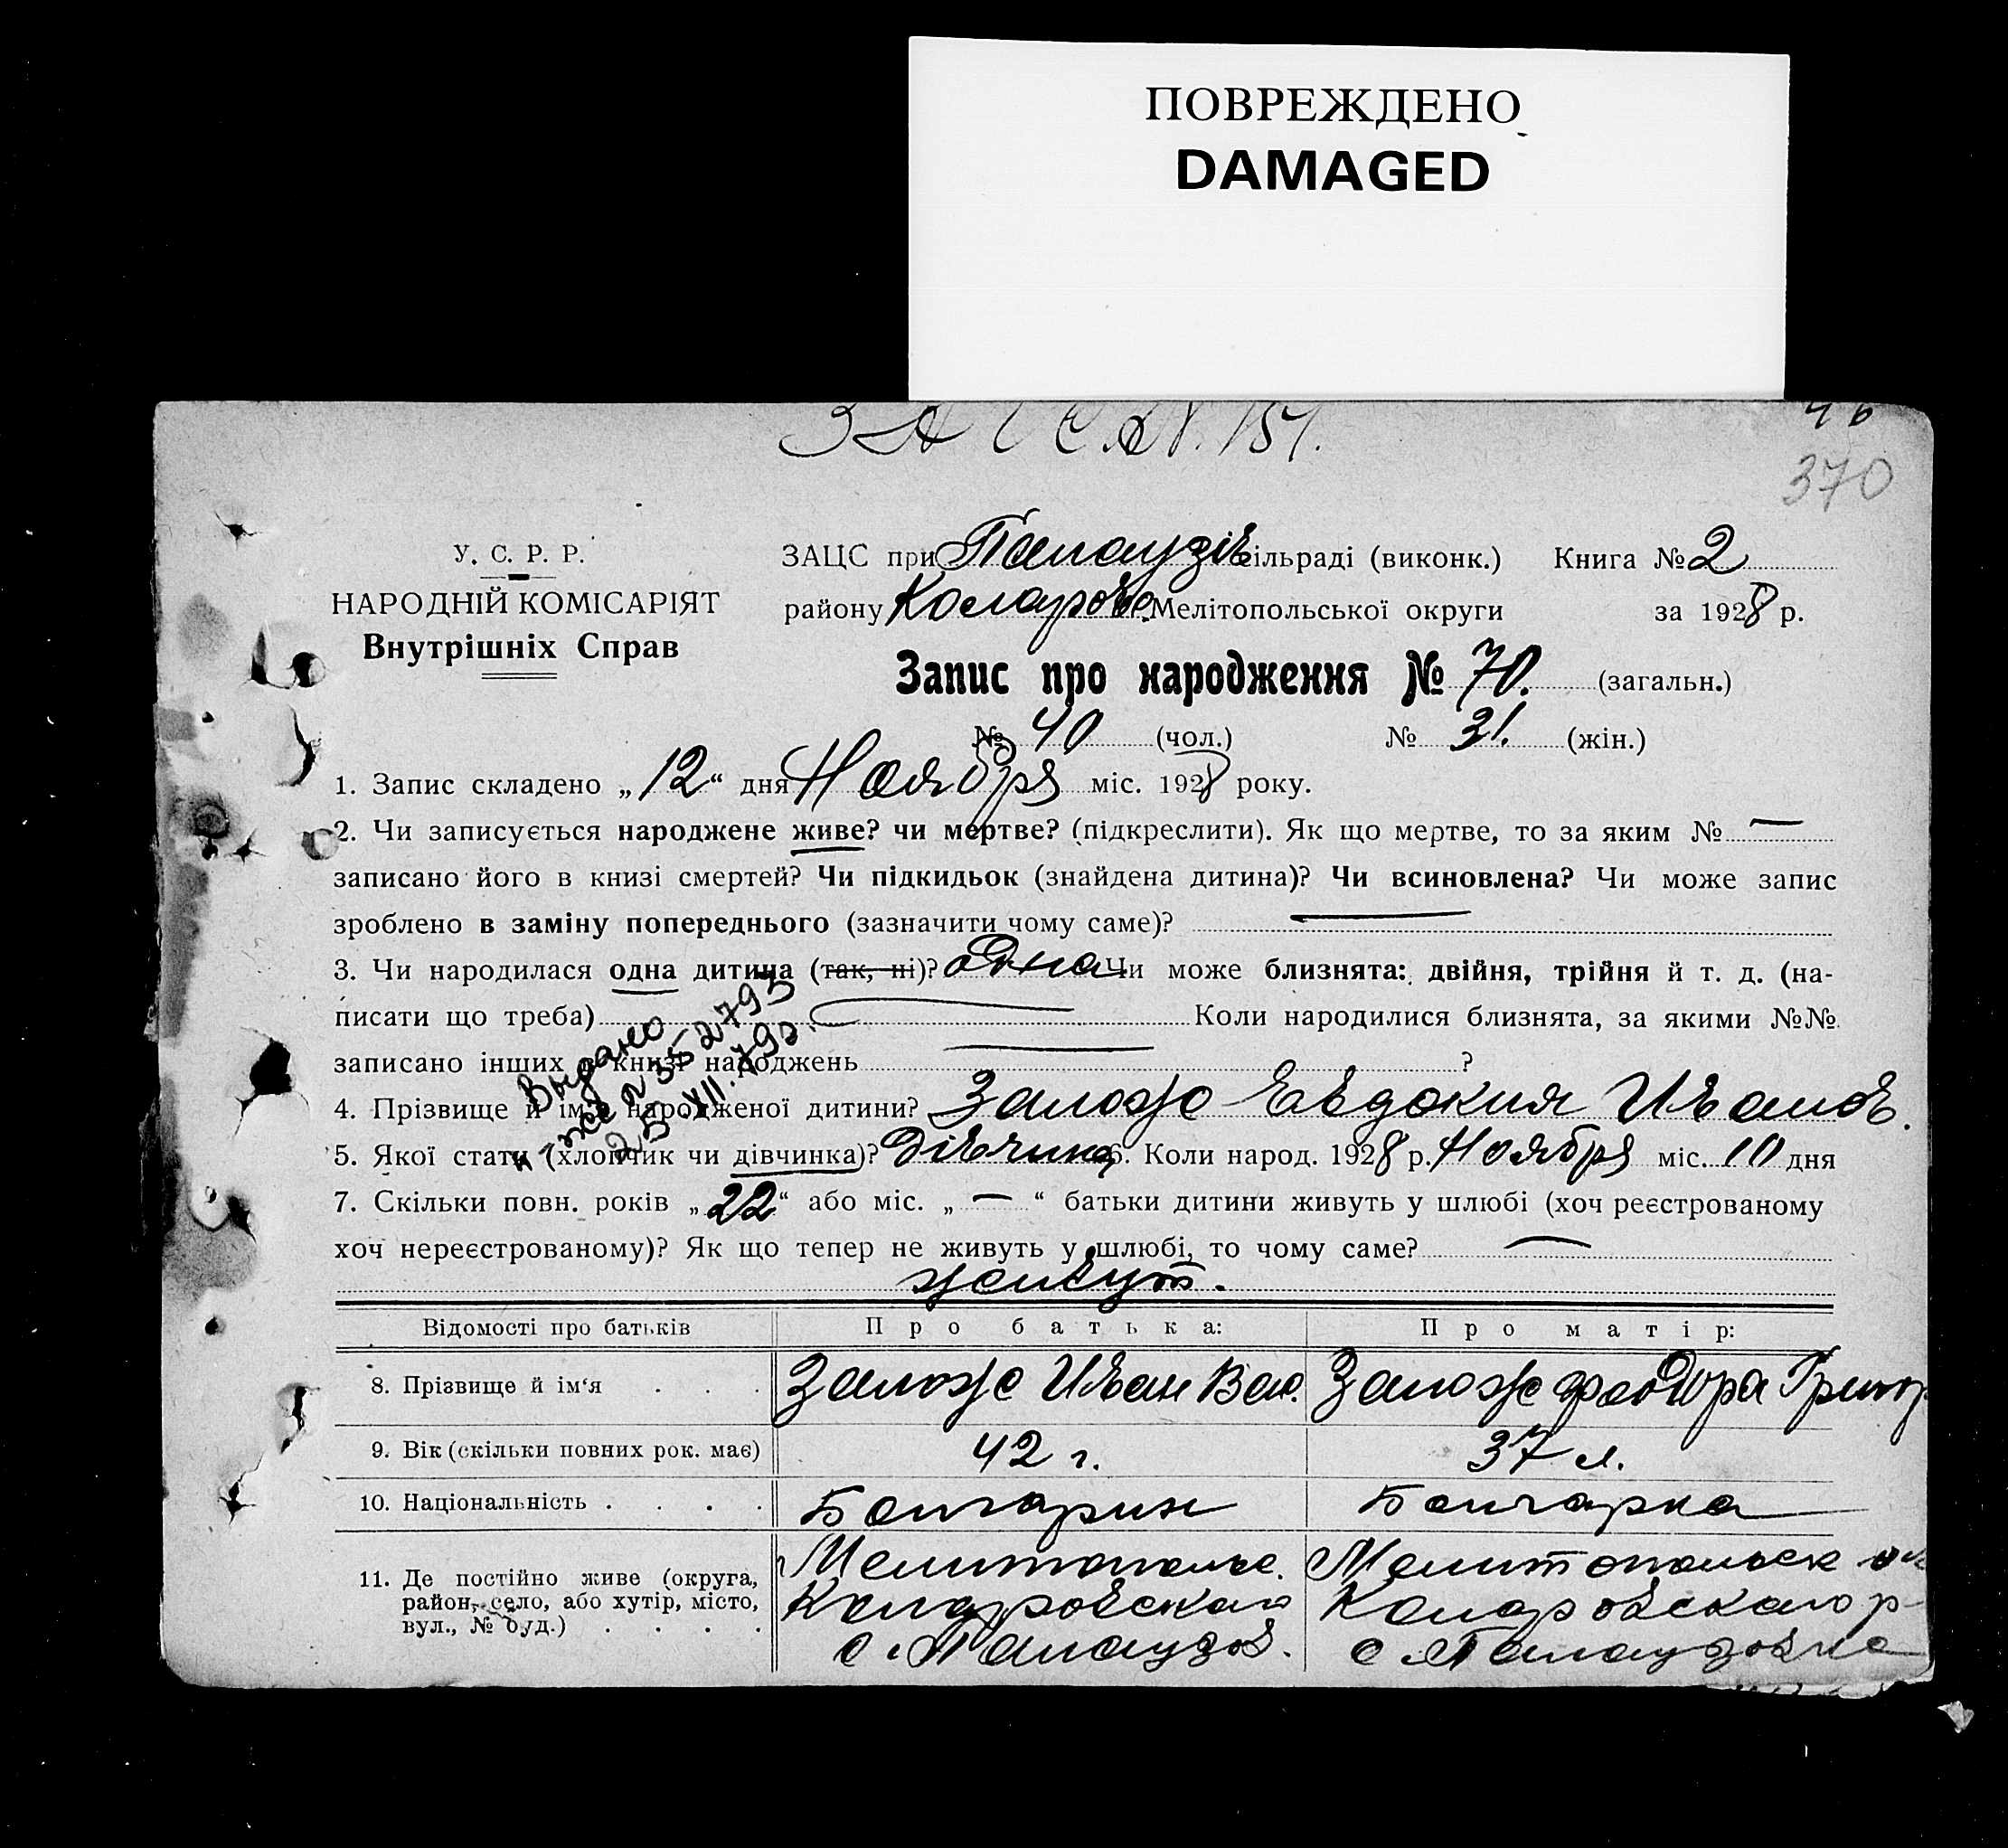 ПОВРЕЖДЕНО
DAMAGED
370
У. С. Р. Р.
НАРОДНІЙ КОМІСАРІЯТ
Внутрішніх Справ
ЗАЦС при Палаузів сільраді (виконк.) Книга № 2
району Коларовс. Мелітопольської округи за 1928 р.
Запис про народження № 70. (загальн.)
№ 40 (чол.) № 31. (жін.)
1. Запис складено „12“ дня Ноября міс. 1928 року.
2. Чи записується народжене живе? чи мертве? (підкреслити). Як що мертве, то за яким № —
записано його в книзі смертей? Чи підкидьок (знайдена дитина)? Чи всиновлена? Чи може запис
зроблено в заміну попереднього (зазначити чому саме)? —
3. Чи народилася одна дитина (так, ні)? одна Чи може близнята: двійня, трійня й т. д. (на-
писати що треба) — Коли народилися близнята, за якими №№
записано інших в книзі народжень — ?
Выдано
25 XII. 793
4. Прізвище й ім'я народженої дитини? Заложе Евдокия Иванов.
5. Якої стати (хлопчик чи дівчинка)? Дівчина 6. Коли народ. 1928 р. Ноября міс. 10 дня
7. Скільки повн. років „22“ або міс. „—“ батьки дитини живуть у шлюбі (хоч реєстрованому
хоч нереєстрованому)? Як що тепер не живуть у шлюбі, то чому саме? —
живут.
Відомості про батьків Про батька: Про матір:
8. Прізвище й ім'я . . . Заложе Иван Вас. Заложе Феодора Григор
9. Вік (скільки повних рок. має) 42 г. 37 л.
10. Національність . . . . Болгарин Болгарка
11. Де постійно живе (округа, район, село, або хутір, місто, вул., № буд.) . . . .
Мелитопольс. Мелитопольск ок
Коларовскаго Коларовскаго р
с. Палаузов. с. Палаузовка